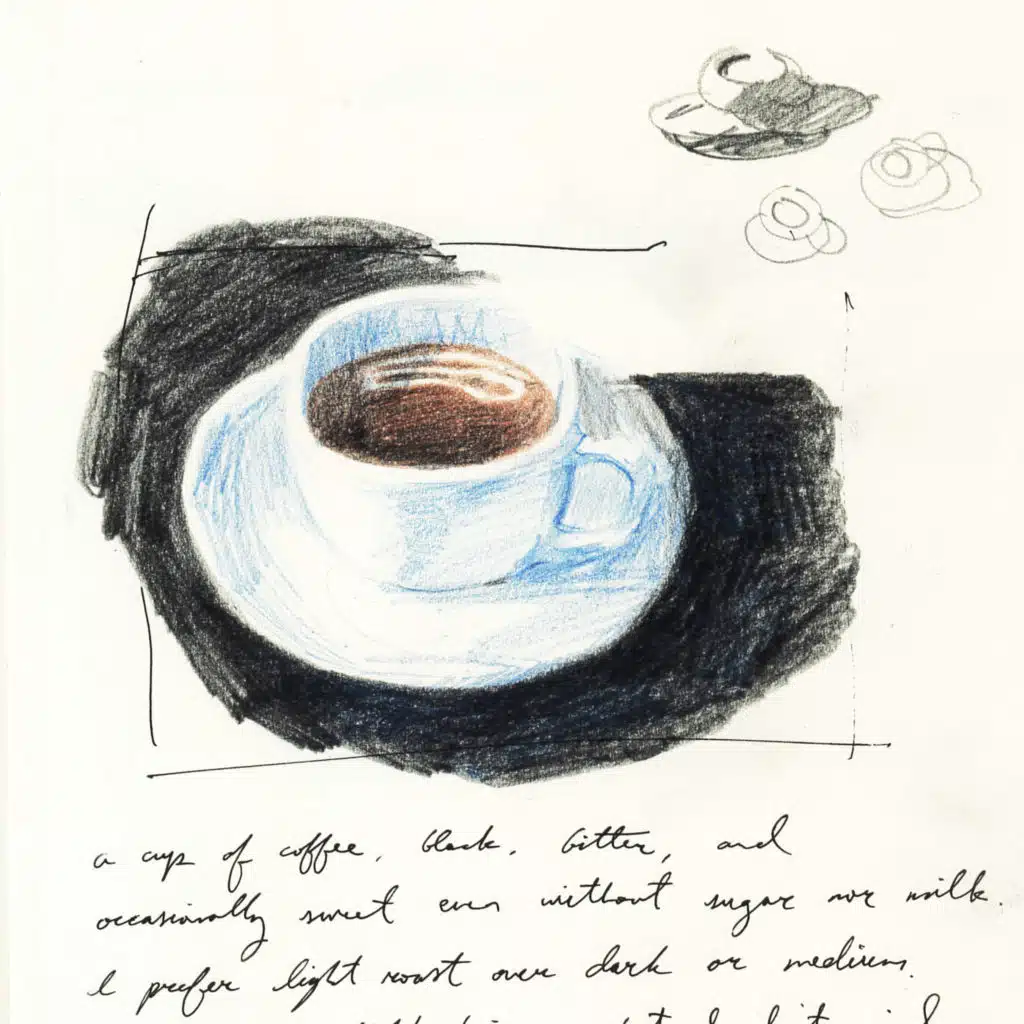 a cup of coffee, black, bitter, and
occasionally sweet even without sugar nor milk.
I prefer light roast over dark or medium.